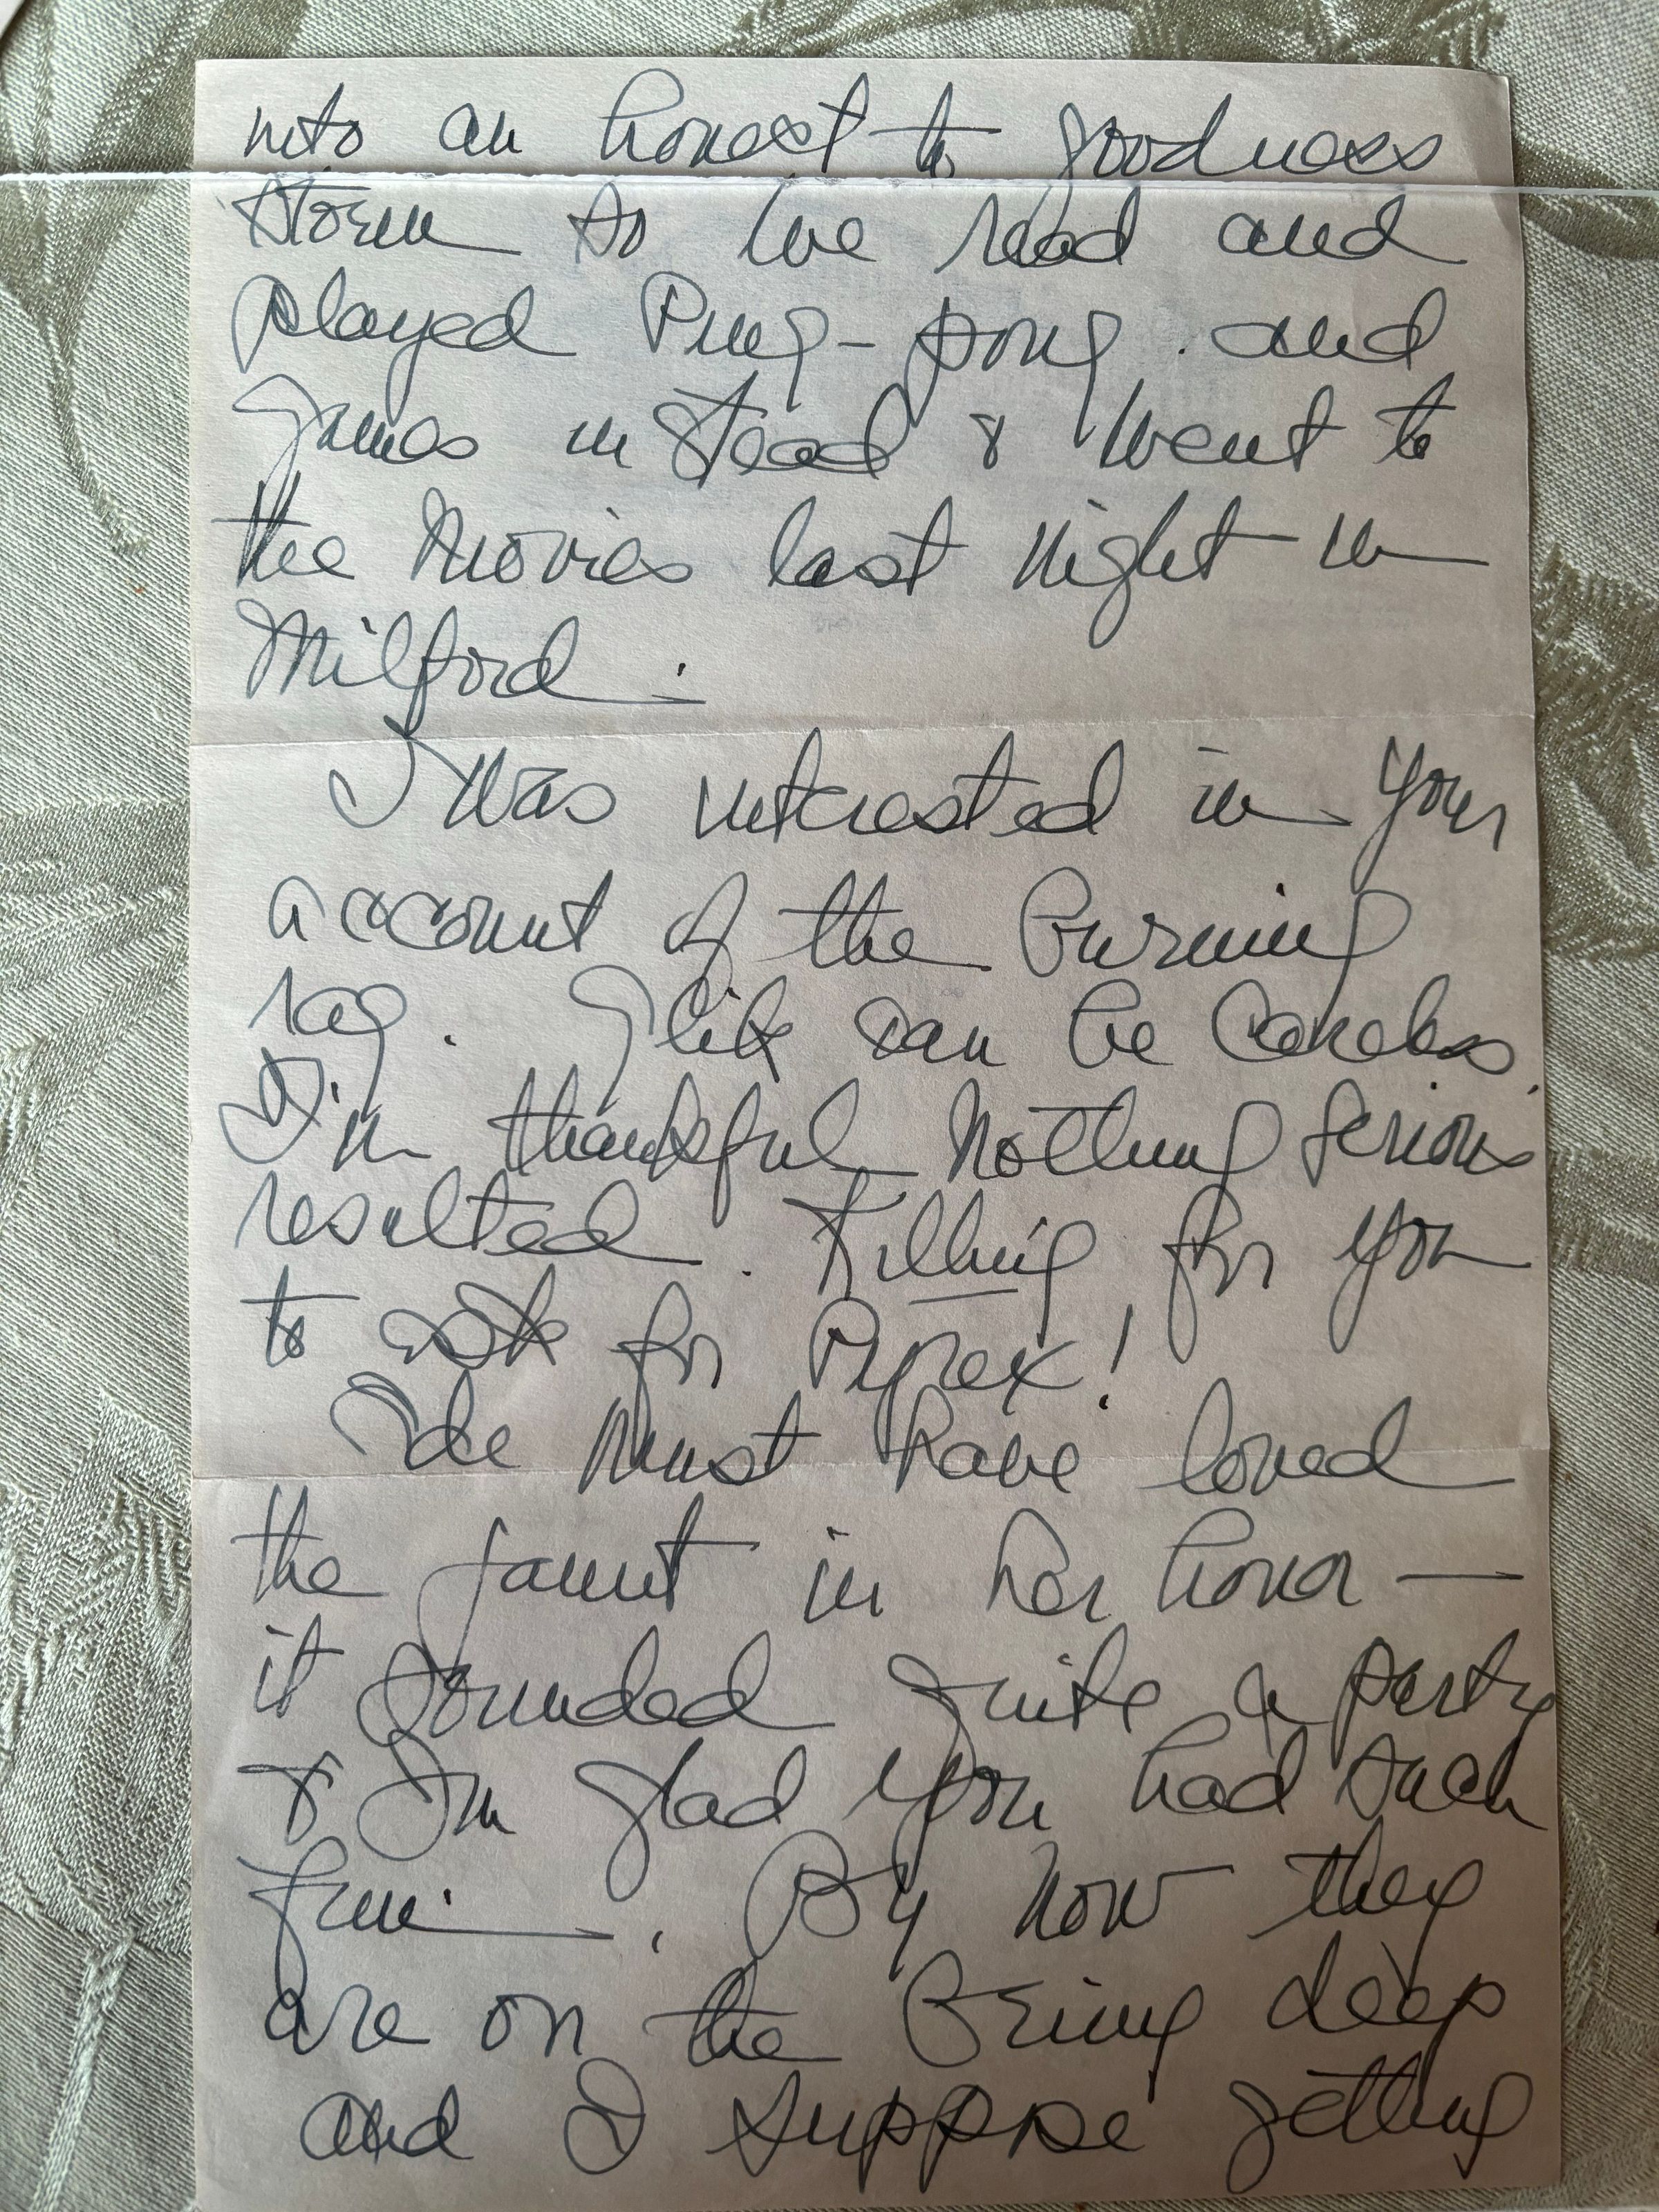 into an honest to goodness
storm so we read and
played Ping-pong and
games instead & went to
the movies last night in
Milford.
I was interested in your
account of the burning
rag. Glik can be careless.
I'm thankful nothing serious
resulted. Killing for you
to ask for Pyrex!
Ede must have loved
the jaunt in her honor —
it sounded quite a party
& I'm glad you had such
fun. By now they
are on the briny deep
and I suppose getting